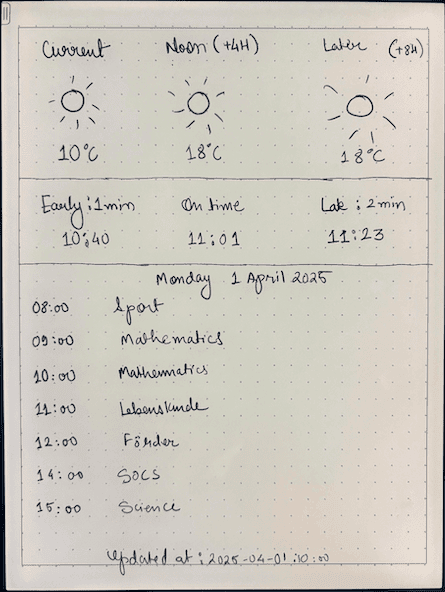 Current Noon (+4H) Later (+8H)
10°C 18°C 18°C
Early : 1 min On time Late : 2 min
10:40 11:01 11:23
Monday 1 April 2025
08:00 Sport
09:00 Mathematics
10:00 Mathematics
11:00 Lebenskunde
12:00 Förder
14:00 SOCS
15:00 Science
Updated at : 2025-04-01 :10:00